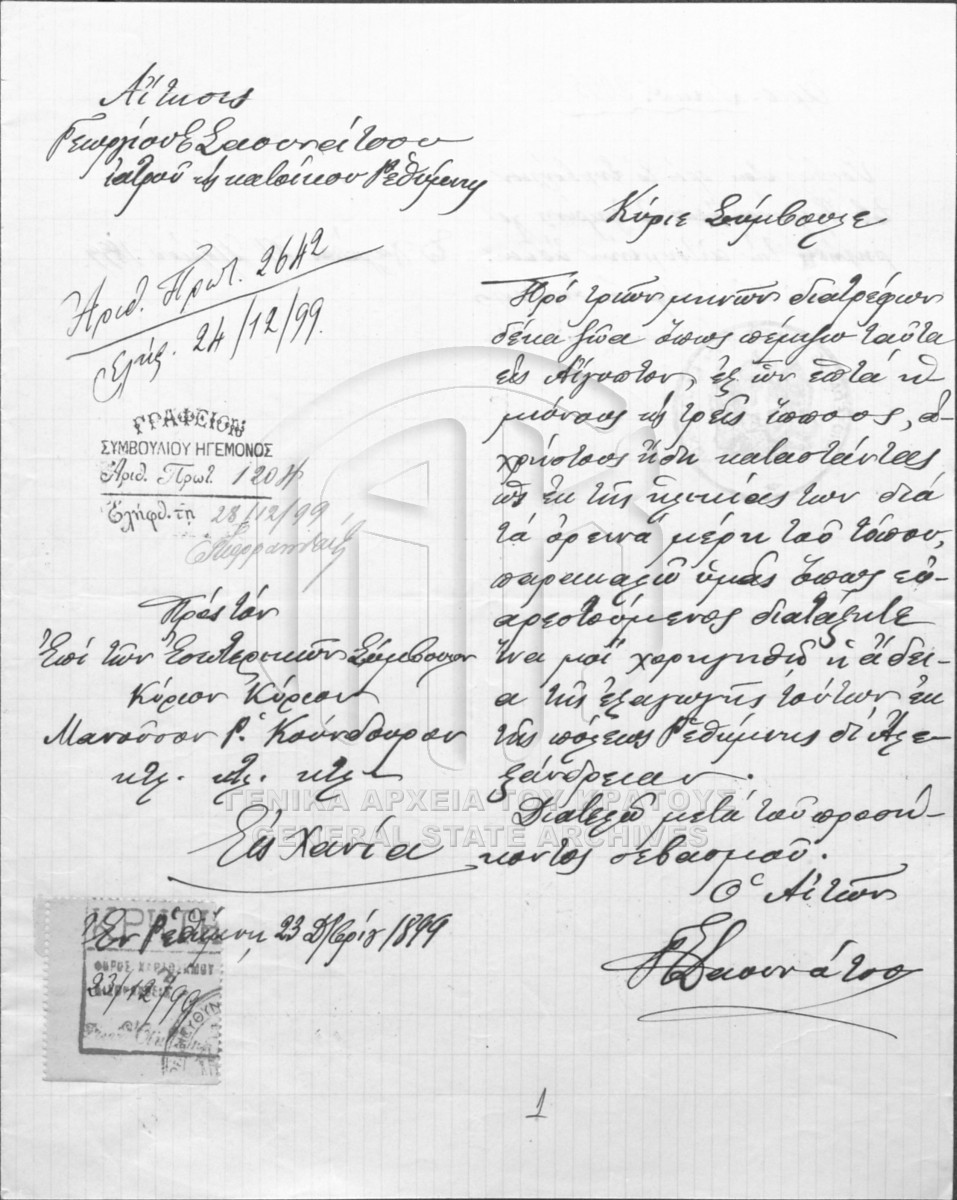 Αἴτησις
Γεωργίου Ε Σαουνάτσου
ἰατροῦ κ κατοίκου Ρεθύμνης
Ἀριθ. Πρωτ. 2642
Ἐλήφ. 24/12/99
ΓΡΑΦΕΙΟΝ
ΣΥΜΒΟΥΛΙΟΥ ΗΓΕΜΟΝΟΣ
Ἀριθ. Πρωτ. 1204
Ἐλήφθη τῇ 28/12/99
Πρὸς τὸν
Ἐπὶ τῶν Ἐσωτερικῶν Σύμβουλον
Κύριον Κύριον
Μανοῦσον Ρ. Κούνδουρον
κτλ. κτλ. κτλ
Εἰς Χανία
Ἐν Ρεθύμνῃ 23 Δ/βρίου 1899
ΦΟΡΟΣ ΧΑΡΤΟΣΗΜΟΥ
23/12/99
Κύριε Σύμβουλε
Πρὸ τριῶν μηνῶν διατρέφων
δέκα ζῶα ὅπως πέμψω ταῦτα
εἰς Αἴγυπτον, ἐξ ὧν ἑπτὰ ἡ-
μιόνους κ τρεῖς ἵππους, ἀ-
χρήστους ἤδη καταστάντας
ὡς ἐκ τῆς ἡλικίας των διὰ
τὰ ὀρεινὰ μέρη τοῦ τόπου,
παρακαλῶ ὑμᾶς ὅπως εὐ-
αρεστούμενος διατάξητε
ἵνα μοὶ χορηγηθῇ ἡ ἄδει-
α τῆς ἐξαγωγῆς τούτων ἐκ
τῆς πόλεως Ρεθύμνης δι' Ἀλε-
ξάνδρειαν.
Διατελῶ μετὰ τοῦ προσή-
κοντος σεβασμοῦ.
Ὁ Αἰτῶν
ΓΕΣαουνάτσος
ΓΕΝΙΚΑ ΑΡΧΕΙΑ ΤΟΥ ΚΡΑΤΟΥΣ
GENERAL STATE ARCHIVES
1